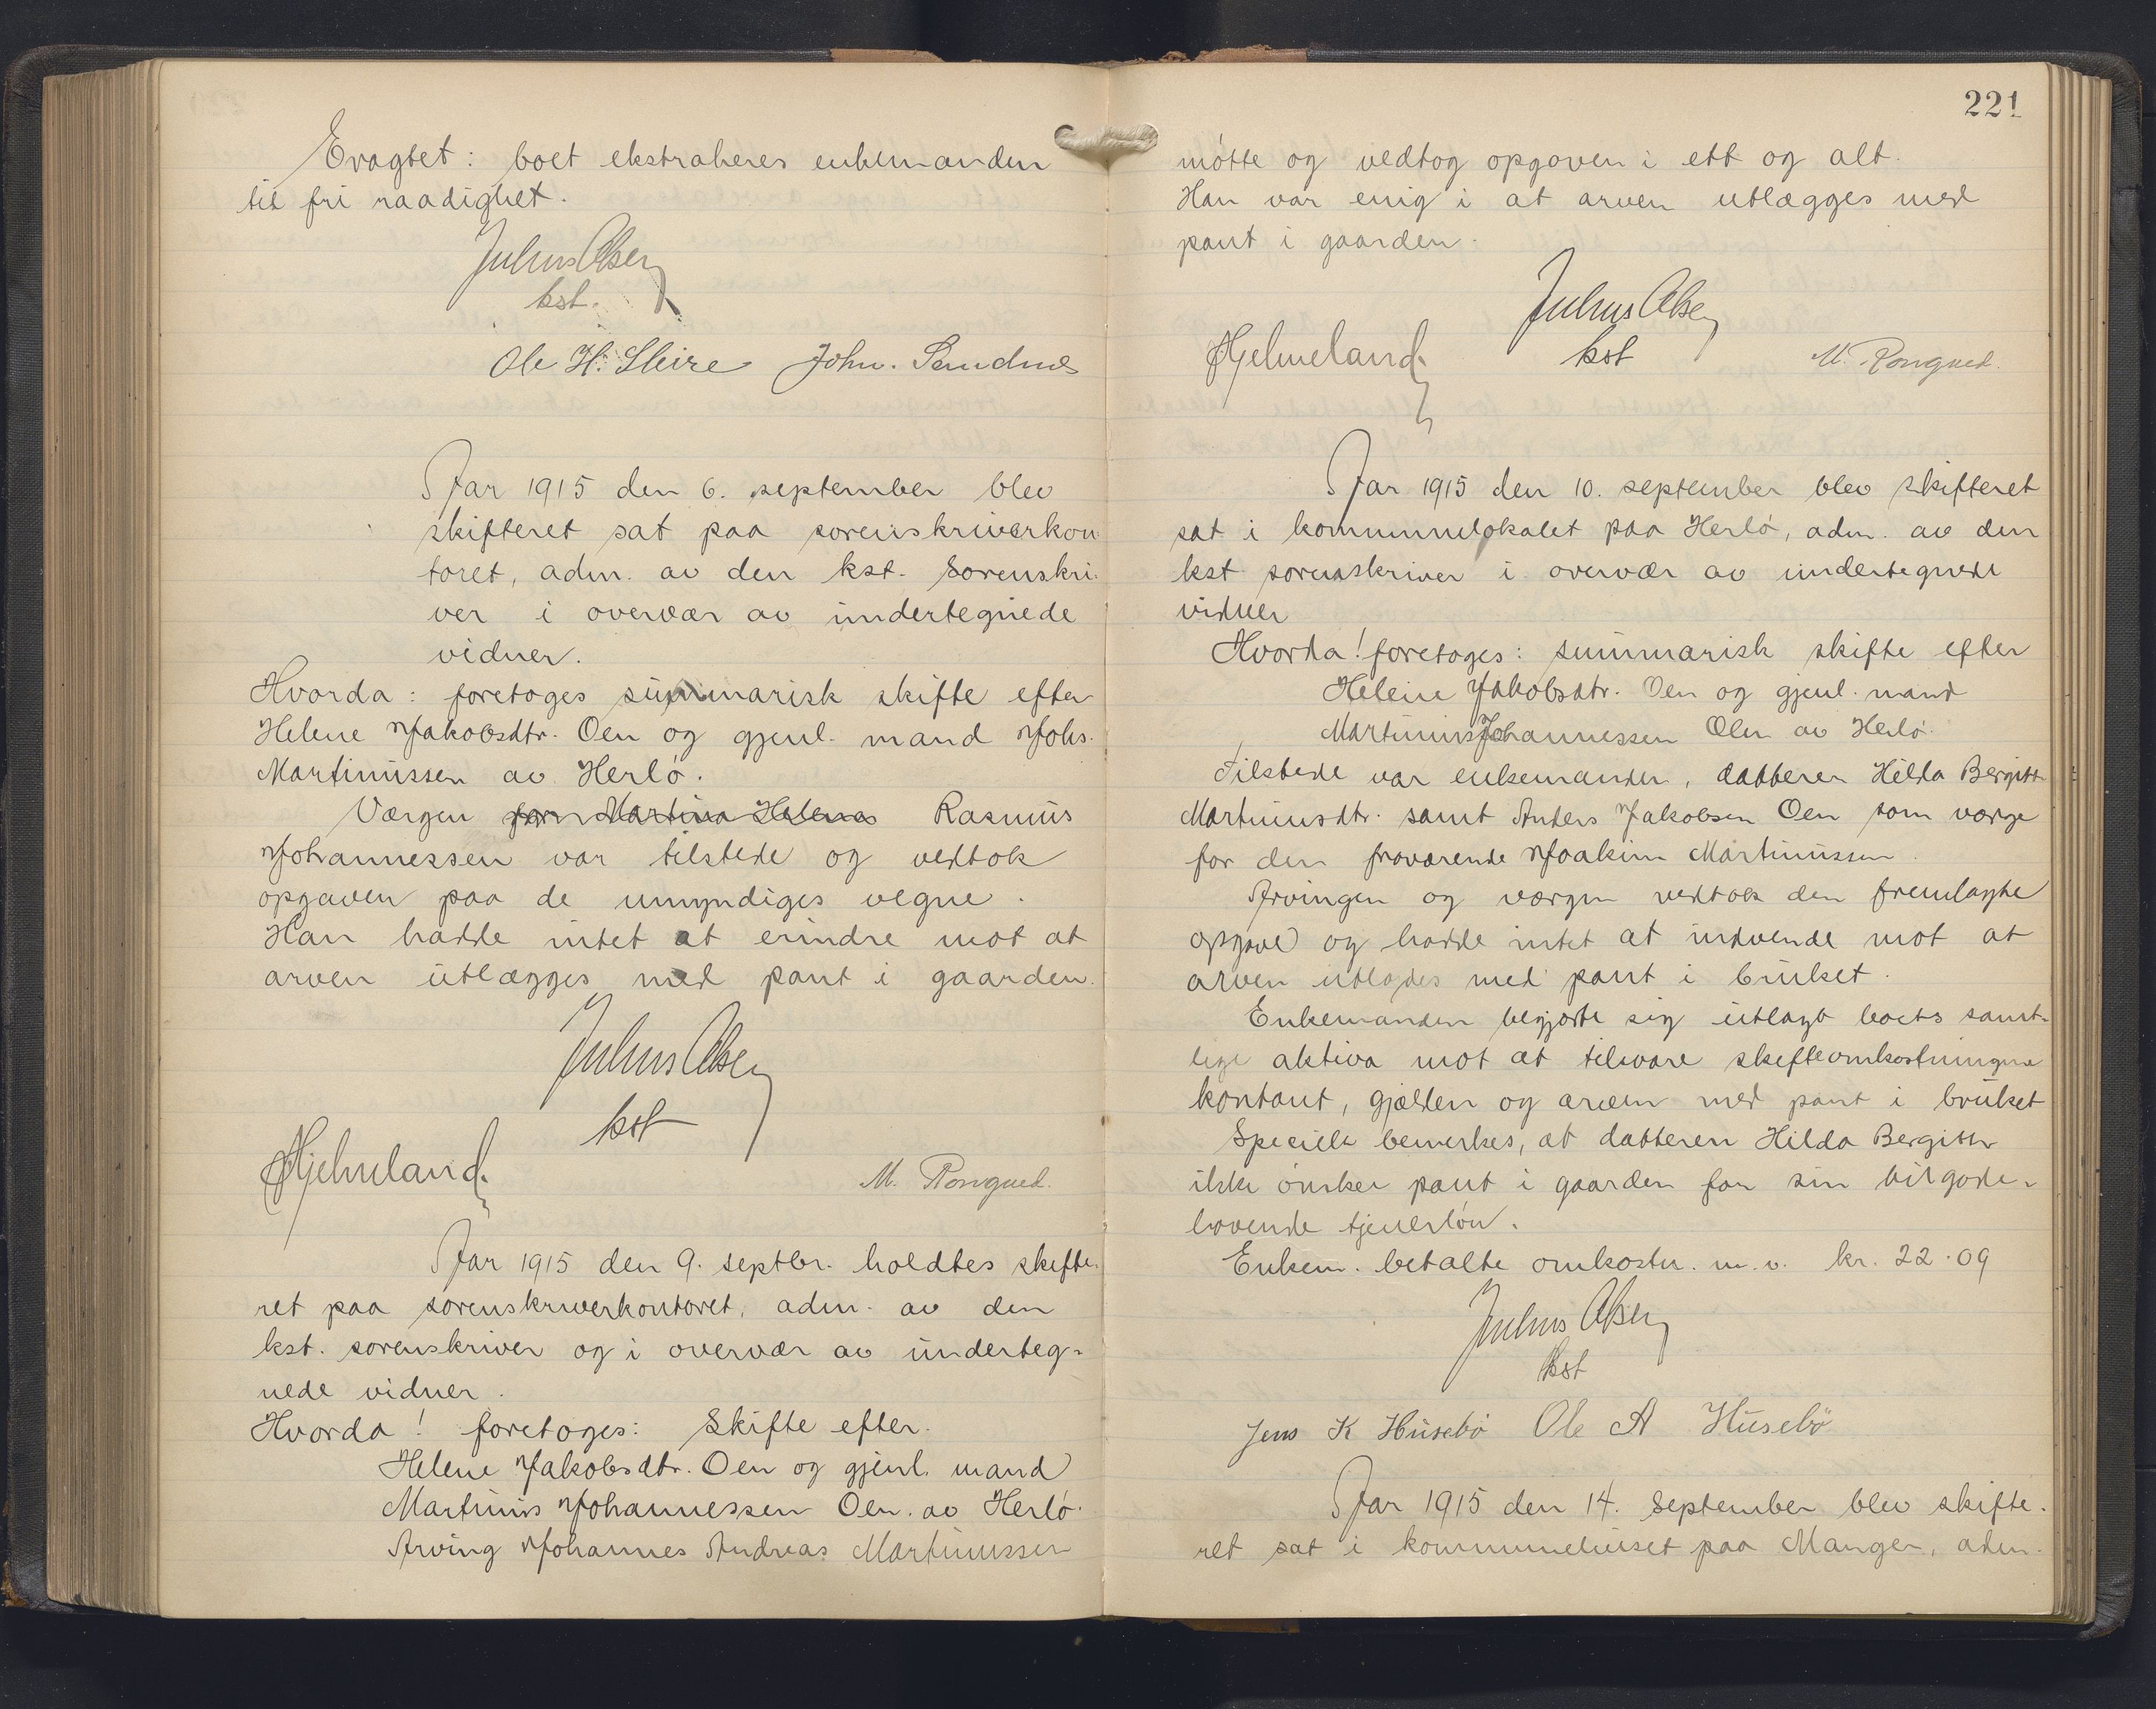 Eragtet: boet ekstraheres enkemanden
til fri raadighet.
Julius Olsen
kst.
Ole H. Sleire John. Sandnes
Aar 1915 den 6. september blev
skifteret sat paa sorenskriverkon-
toret, adm. av den kst. Sorenskri-
ver i overvær av undertegnede
vidner.
Hvorda: foretoges summarisk skifte efter
Helene Jakobsdtr. Oen og gjenl. mand Johs.
Martinussen av Herlö.
Værgen for Martina Helena Rasmus
Johannessen var tilstede og vedtok
opgaven paa de umyndiges vegne.
Han hadde intet at erindre mot at
arven utlægges med pant i gaarden.
Julius Olsen
kst
Hjelmeland.
M. Rongved.
Aar 1915 den 9. septbr. holdtes skifte-
ret paa sorenskriverkontoret, adm. av den
kst. sorenskriver og i overvær av underteg-
nede vidner.
Hvorda! foretoges: Skifte efter
Helene Jakobsdtr. Oen og gjenl. mand
Martinus Johannessen Oen. av Herlö.
Arving Johannes Andreas Martinussen
221
mötte og vedtog opgaven i ett og alt.
Han var enig i at arven utlægges med
pant i gaarden.
Julius Olsen
Hjelmeland. kst M. Rongved.
Aar 1915 den 10. september blev skifteret
sat i kommunelokalet paa Herlö, adm. av den
kst sorenskriver i overvær av undertegnede
vidner
Hvorda! foretoges: summarisk skifte efter
Helene Jakobsdtr. Oen og gjenl. mand
Martinus Johannessen Oen av Herlö.
Tilstede var enkemanden, datteren Hilda Bergitte
Martinusdtr. samt Anders Jakobsen Oen som værge
for den fraværende Joakim Martinussen.
Arvingen og værgen vedtok den fremlagte
opgave og hadde intet at indvende mot at
arven utlagdes med pant i bruket.
Enkemanden begjærte sig utlagt boets samt-
lige aktiva mot at tilsvare skifteomkostningene
kontant, gjælden og arven med pant i bruket
Specielt bemerkes, at datteren Hilda Bergitte
ikke önsker pant i gaarden for sin tilgode-
havende tjenerlön.
Enkem. betalte omkostn. m.v. kr. 22.09
Julius Olsen
kst
Jens K Husebö Ole A Husebö
Aar 1915 den 14. September blev skifte-
ret sat i kommunehuset paa Manger, adm.